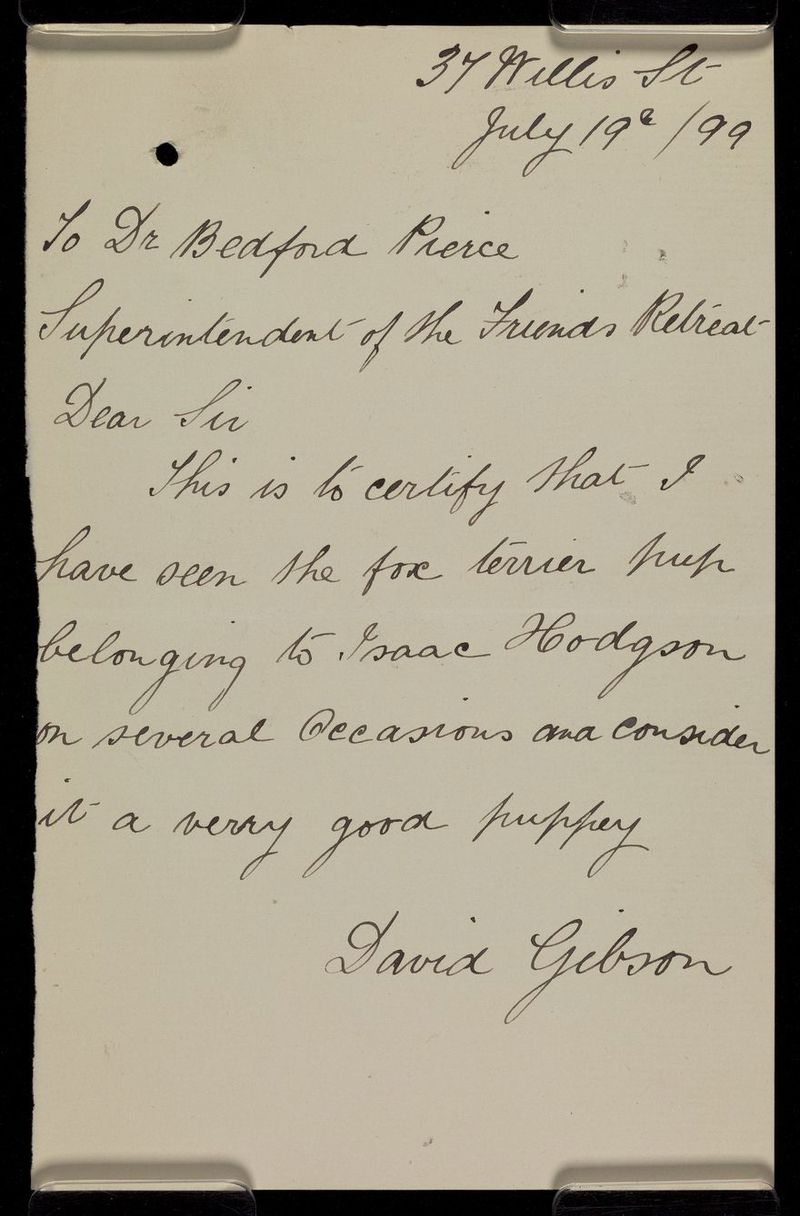 37 Willis St
July 19th /99
To Dr Bedford Pierce
Superintendent of the Friends Retreat
Dear Sir
This is to certify that I
have seen the fox terrier pup
belonging to Isaac Hodgson
on several Occasions and consider
it a verry good puppey
David Gibson